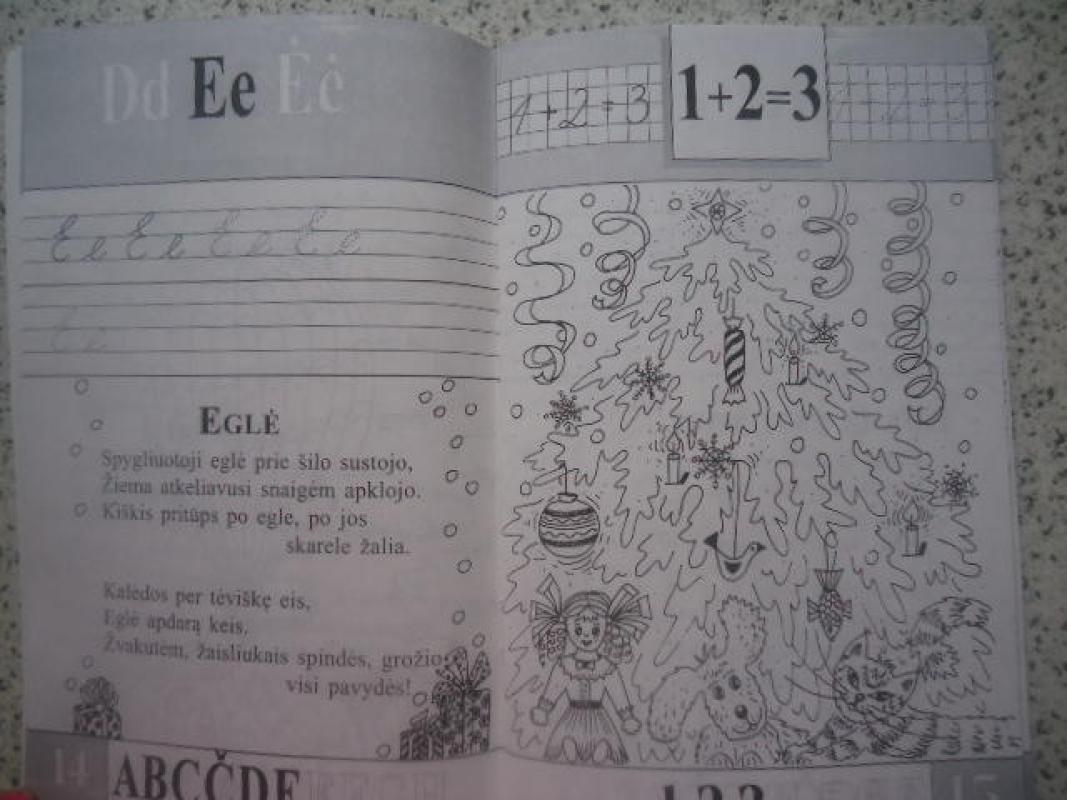 Dd Ee Ėė
Ee Ee Ee Ee
EGLĖ
Spygliuotoji eglė prie šilo sustojo,
Žiema atkeliavusi snaigėm apklojo.
Kiškis pritūps po egle, po jos
skarele žalia.
Kalėdos per tėviškę eis,
Eglė apdarą keis.
Žvakutėm, žaisliukais spindės, grožio
visi pavydės!
14
ABCČDE
1+2=3
1+2=3
1+2=3
1 2 3
15